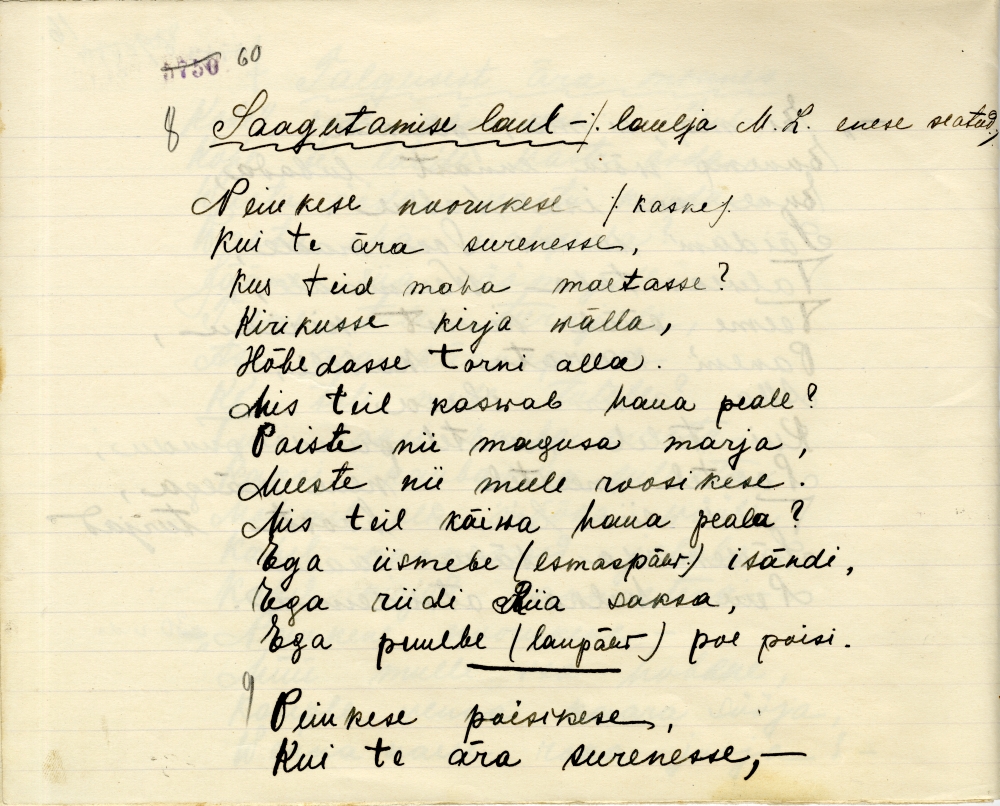 5750 60
8 Saagutamise laul –/. laulja M. L. enese seatud/
Peiukese noorukese /. kaske/.
Kui te ära surenesse,
Kus teid maha maetasse?
Kirikusse kirja wälla,
Hõbedasse torni alla.
Mis teil kaswab haua peale?
Poiste nii magusa marja,
Meeste nii meele roosikese.
Mis teil käiwa haua peala?
Ega iismebe (esmaspäew.) isändi,
Ega riidi Riia saksa,
Ega puulbe (laupäew) poe poisi.
9 Peiukese poisikese,
Kui te ära surenesse,—